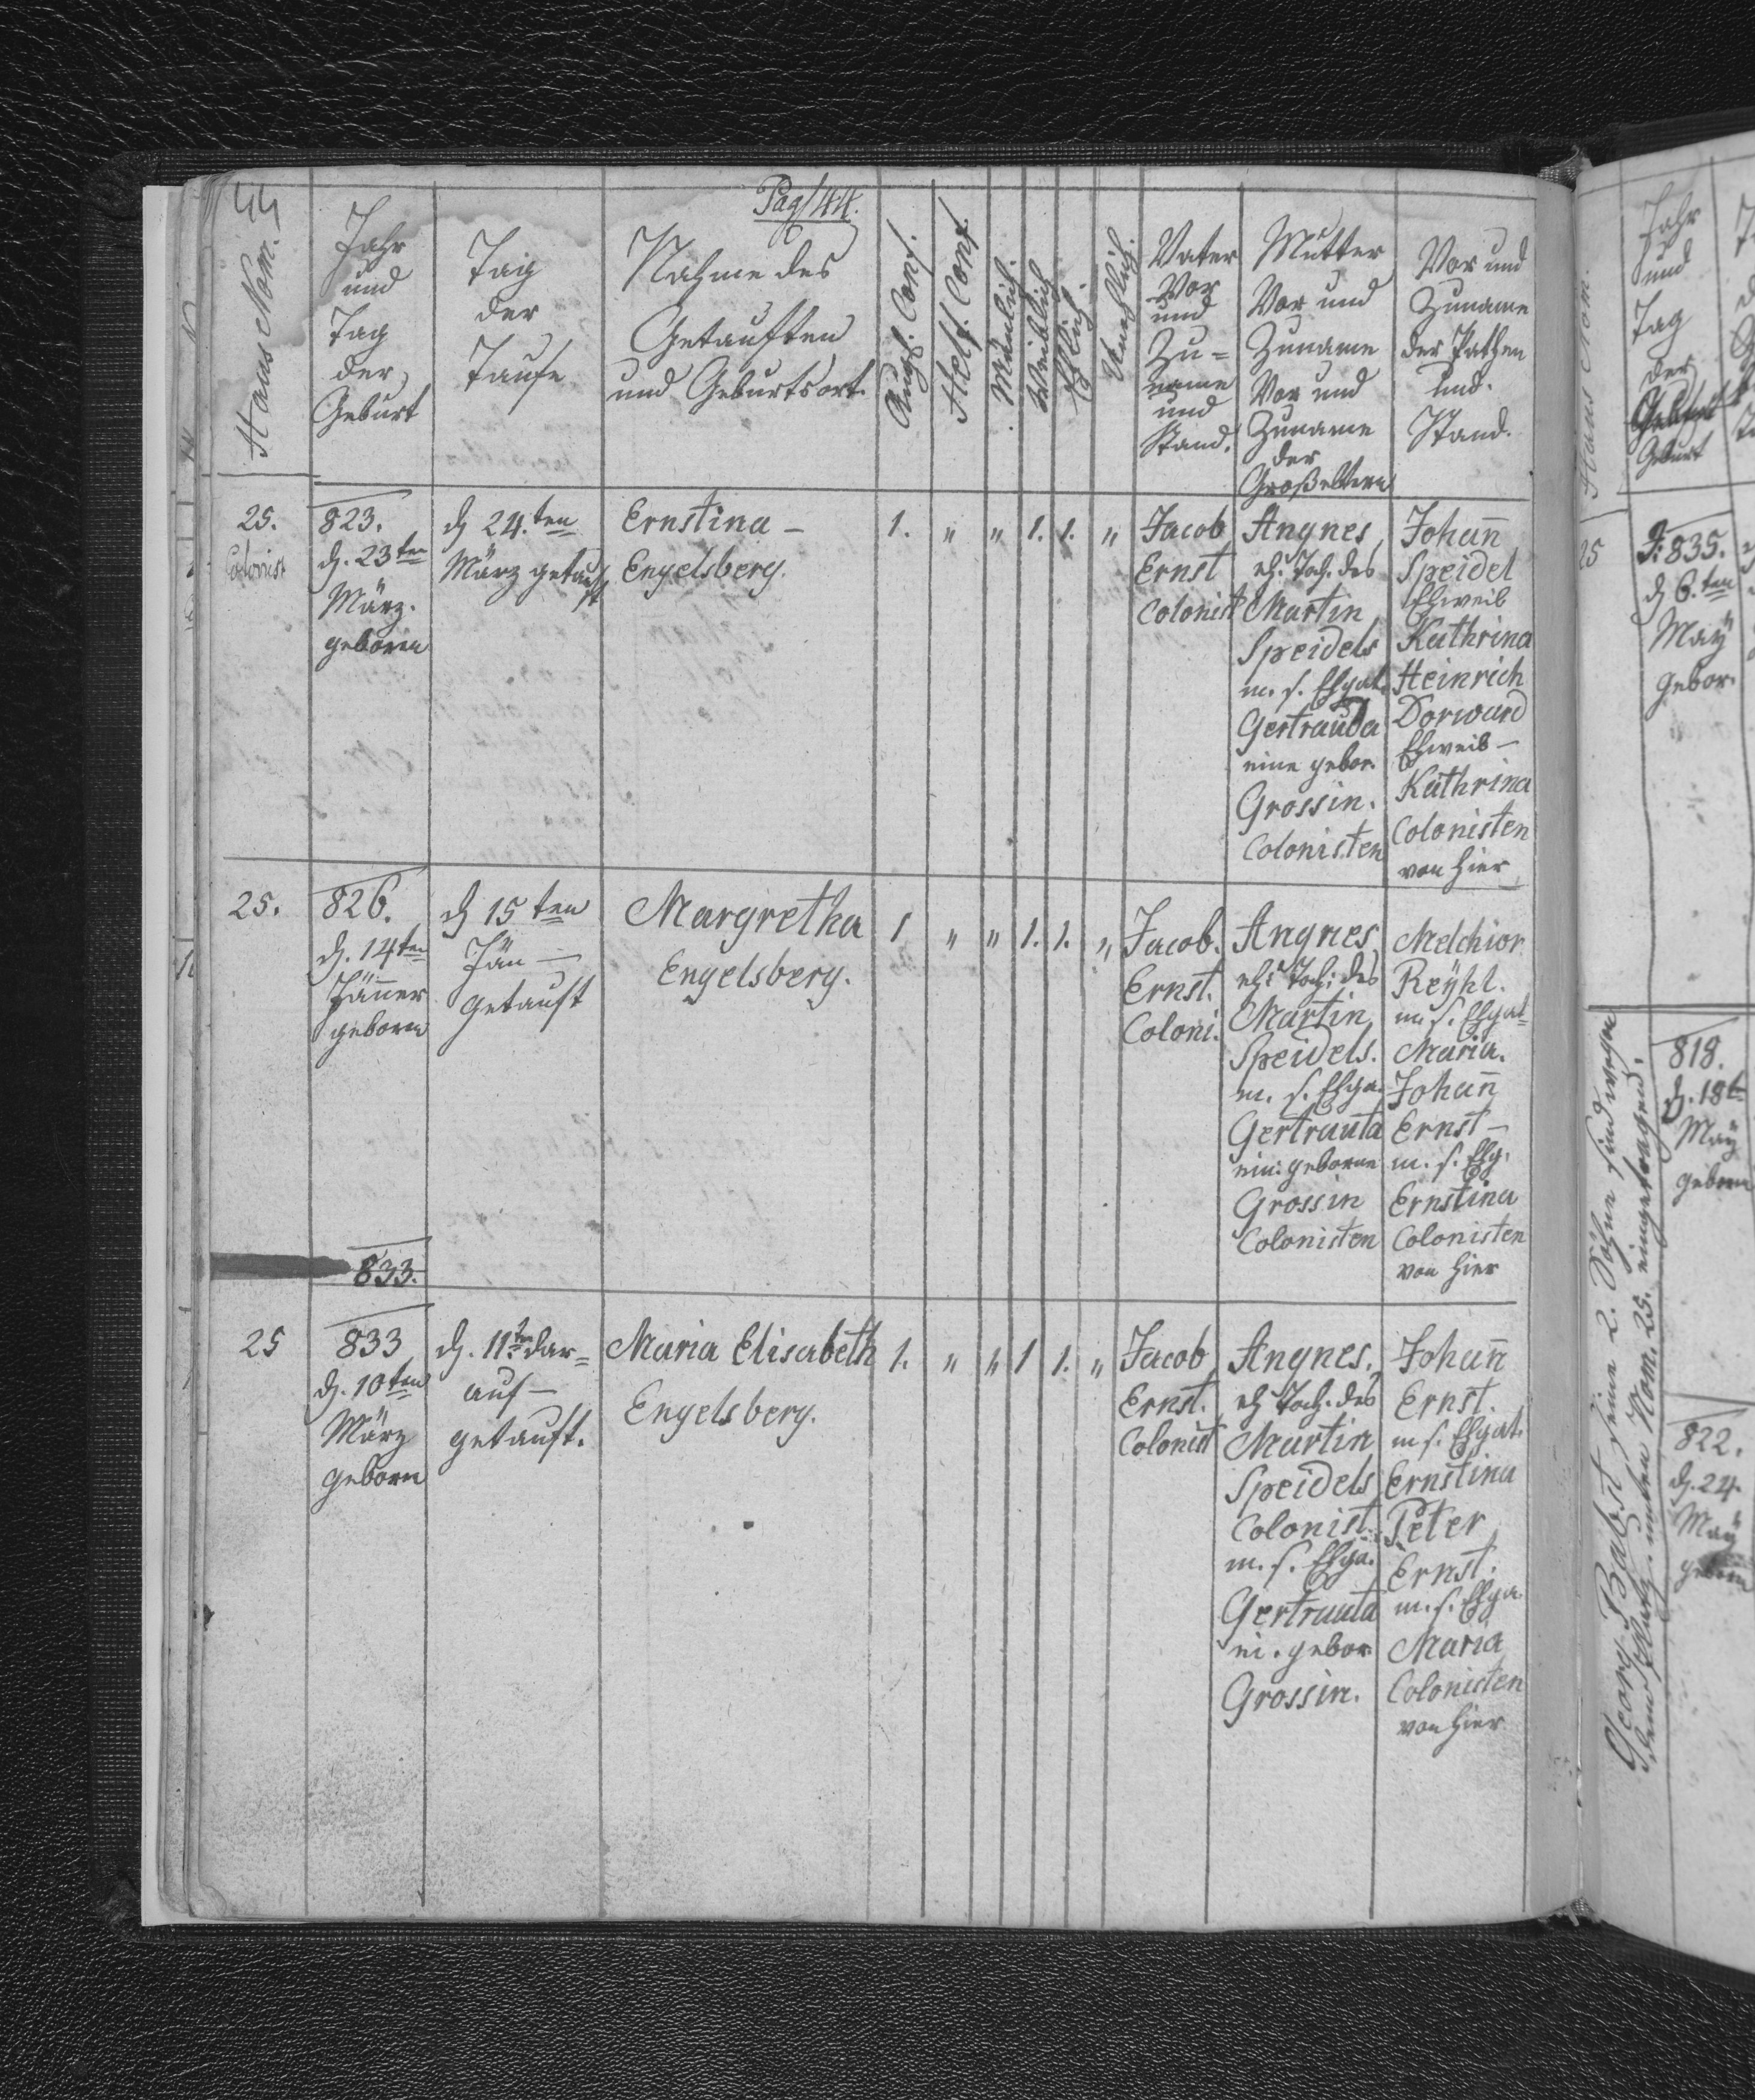 44
Pag 44.
Haus Nom.
Jahr
und
Tag
der
Geburt
Taig
der
Taufe
Nahme des
Getauften
und Geburtsort.
Augs. Conf.
Helf. Conf.
Mänlich.
Weiblich
Ehlich.
Unehlich.
Vater
Vor
und
Zu=
name
und
Stand.
Mutter
Vor und
Zuname
Vor und
Zuname
der
Großeltern
Vor und
Zuname
der Pathen
und.
Stand.
25.
Colonist
823.
d. 23ten
März.
geboren
d 24.ten
März getauft
Ernstina –
Engelsberg.
1. " " 1. 1. "
Jacob
Ernst
Colonist
Angnes
eh. Toch. des
Martin
Speidels
m. s. Ehgat.
Gertrauda
eine gebor.
Grossin.
Colonisten
Johañ
Speidel
Ehweib
Kathrina
Heinrich
Dorward
Ehweib –
Kathrina
Colonisten
von hier
25.
826.
d. 14ten
Jäñer
geboren
d 15ten
Jän –
getauft
Margretha
Engelsberg.
1 " " 1. 1. "
Jacob.
Ernst.
Coloni.
Angnes.
eh: Toch: des
Martin
Speidels.
m. s. Ehga.
Gertrauta
ein: geborne
Grossin
Colonisten
Melchior
Reÿhl.
m. s. Ehgat=
Maria.
Johañ
Ernst –
m. s. Ehg.
Ernstina
Colonisten
von hier
833.
25
833
d. 10ten
März
geborn
d. 11ten dar=
auf –
getauft.
Maria Elisabeth
Engelsberg.
1. " " 1 1. "
Jacob
Ernst.
Colonist
Angnes.
eh Toch. des
Martin
Speidels
Colonist.
m. s. Ehga.
Gertrauta
ei. gebor.
Grossin.
Johañ
Ernst.
m s. Ehgat.
Ernstina
Peter
Ernst.
m. s. Ehga.
Maria
Colonisten
von hier
Haus Nom.
Jahr
und
Tag
der
Geburt
25
J: 835.
d 6.ten
Maÿ
gebor.
Georg Babst seine 2. Söhne sind
unten Nom. 25. eingetragen.
818.
d. 18t
Maÿ
geborn
822.
d. 24.
Maÿ
geborn